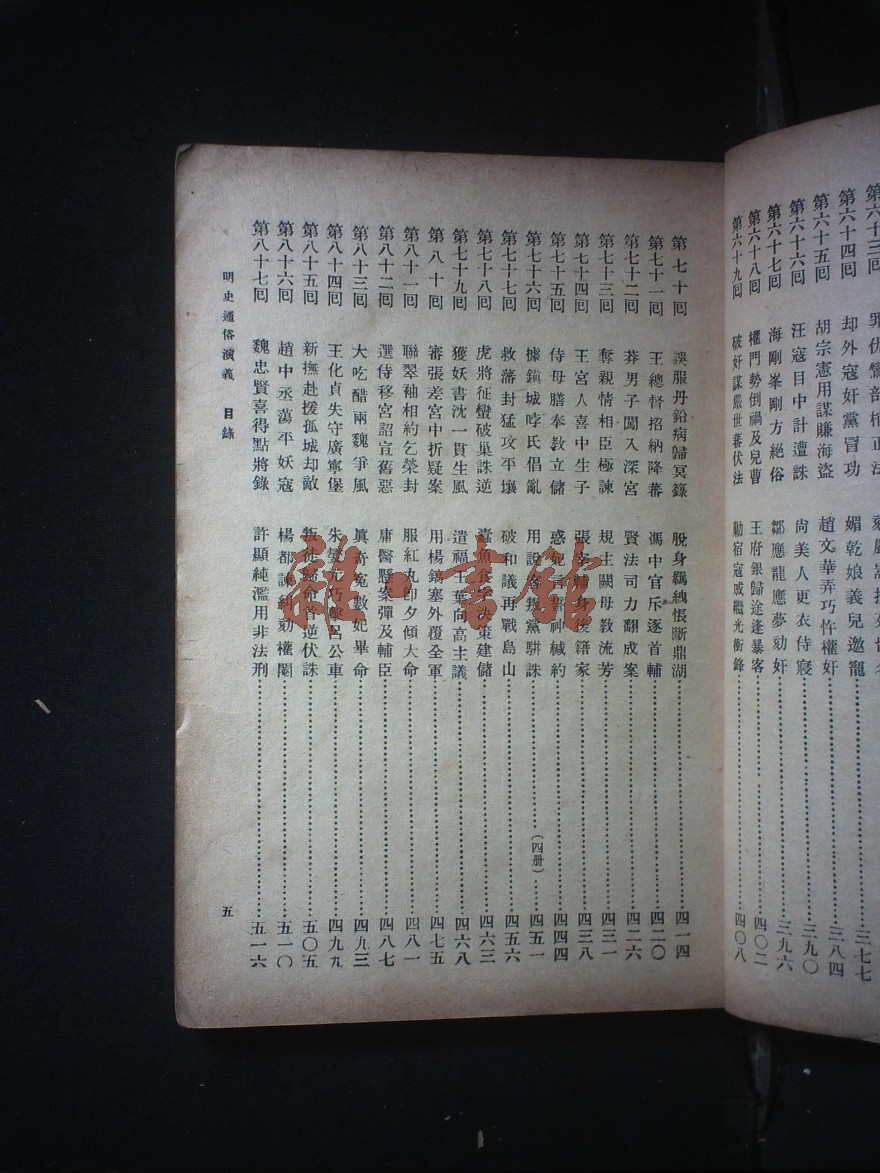 第六十三回 罪仇鸞剖棺正法
第六十四回 却外寇奸黨冒功 媚乾娘義兒邀寵 三七七
第六十五回 胡宗憲用謀賺海盜 趙文華弄巧忤權奸 三八四
第六十六回 汪寇目中計遭誅 尙美人更衣侍寢 三九〇
第六十七回 海剛峯剛方絕俗 鄒應龍應夢劾奸 三九六
第六十八回 權門勢倒禍及兒曹 王府銀歸途逢暴客 四〇二
第六十九回 破奸謀嚴世蕃伏法 剿宿寇戚繼光衝鋒 四〇八
第七十回 誤服丹鉛病歸冥籙 脫身羈紲悵斷鼎湖 四一四
第七十一回 王總督招納降蕃 馮中官斥逐首輔 四二〇
第七十二回 莽男子闖入深宮 賢法司力翻成案 四二六
第七十三回 奪親情相臣極諫 規主闕母敎流芳 四三一
第七十四回 王宮人喜中生子 張宰輔身後籍家 四三八
第七十五回 侍母膳奉敎立儲 惑妃言誓神緘約 四四四
第七十六回 據鎭城哱氏倡亂 用說客叛黨駢誅 (四册) 四五一
第七十七回 救藩封猛攻平壤 破和議再戰島山 四五六
第七十八回 虎將征蠻破巢誅逆 蠹魚食字決策建儲 四六三
第七十九回 獲妖書沈一貫生風 遣福王葉向高主議 四六八
第八十回 審張差宮中折疑案 用楊鎬塞外覆全軍 四七五
第八十一回 聯翠袖相約乞榮封 服紅丸卽夕傾大命 四八一
第八十二回 選侍移宮詔宣舊惡 庸醫懸案彈及輔臣 四八七
第八十三回 大吃醋兩魏爭風 眞奇冤數妃畢命 四九三
第八十四回 王化貞失守廣寧堡 朱燮元巧擊呂公車 四九九
第八十五回 新撫赴援孤城却敵 叛徒歸命首逆伏誅 五〇五
第八十六回 趙中丞蕩平妖寇 楊都諫糾劾權閹 五一〇
第八十七回 魏忠賢喜得點將錄 許顯純濫用非法刑 五一六
明史通俗演義 目錄 五
雜·書館